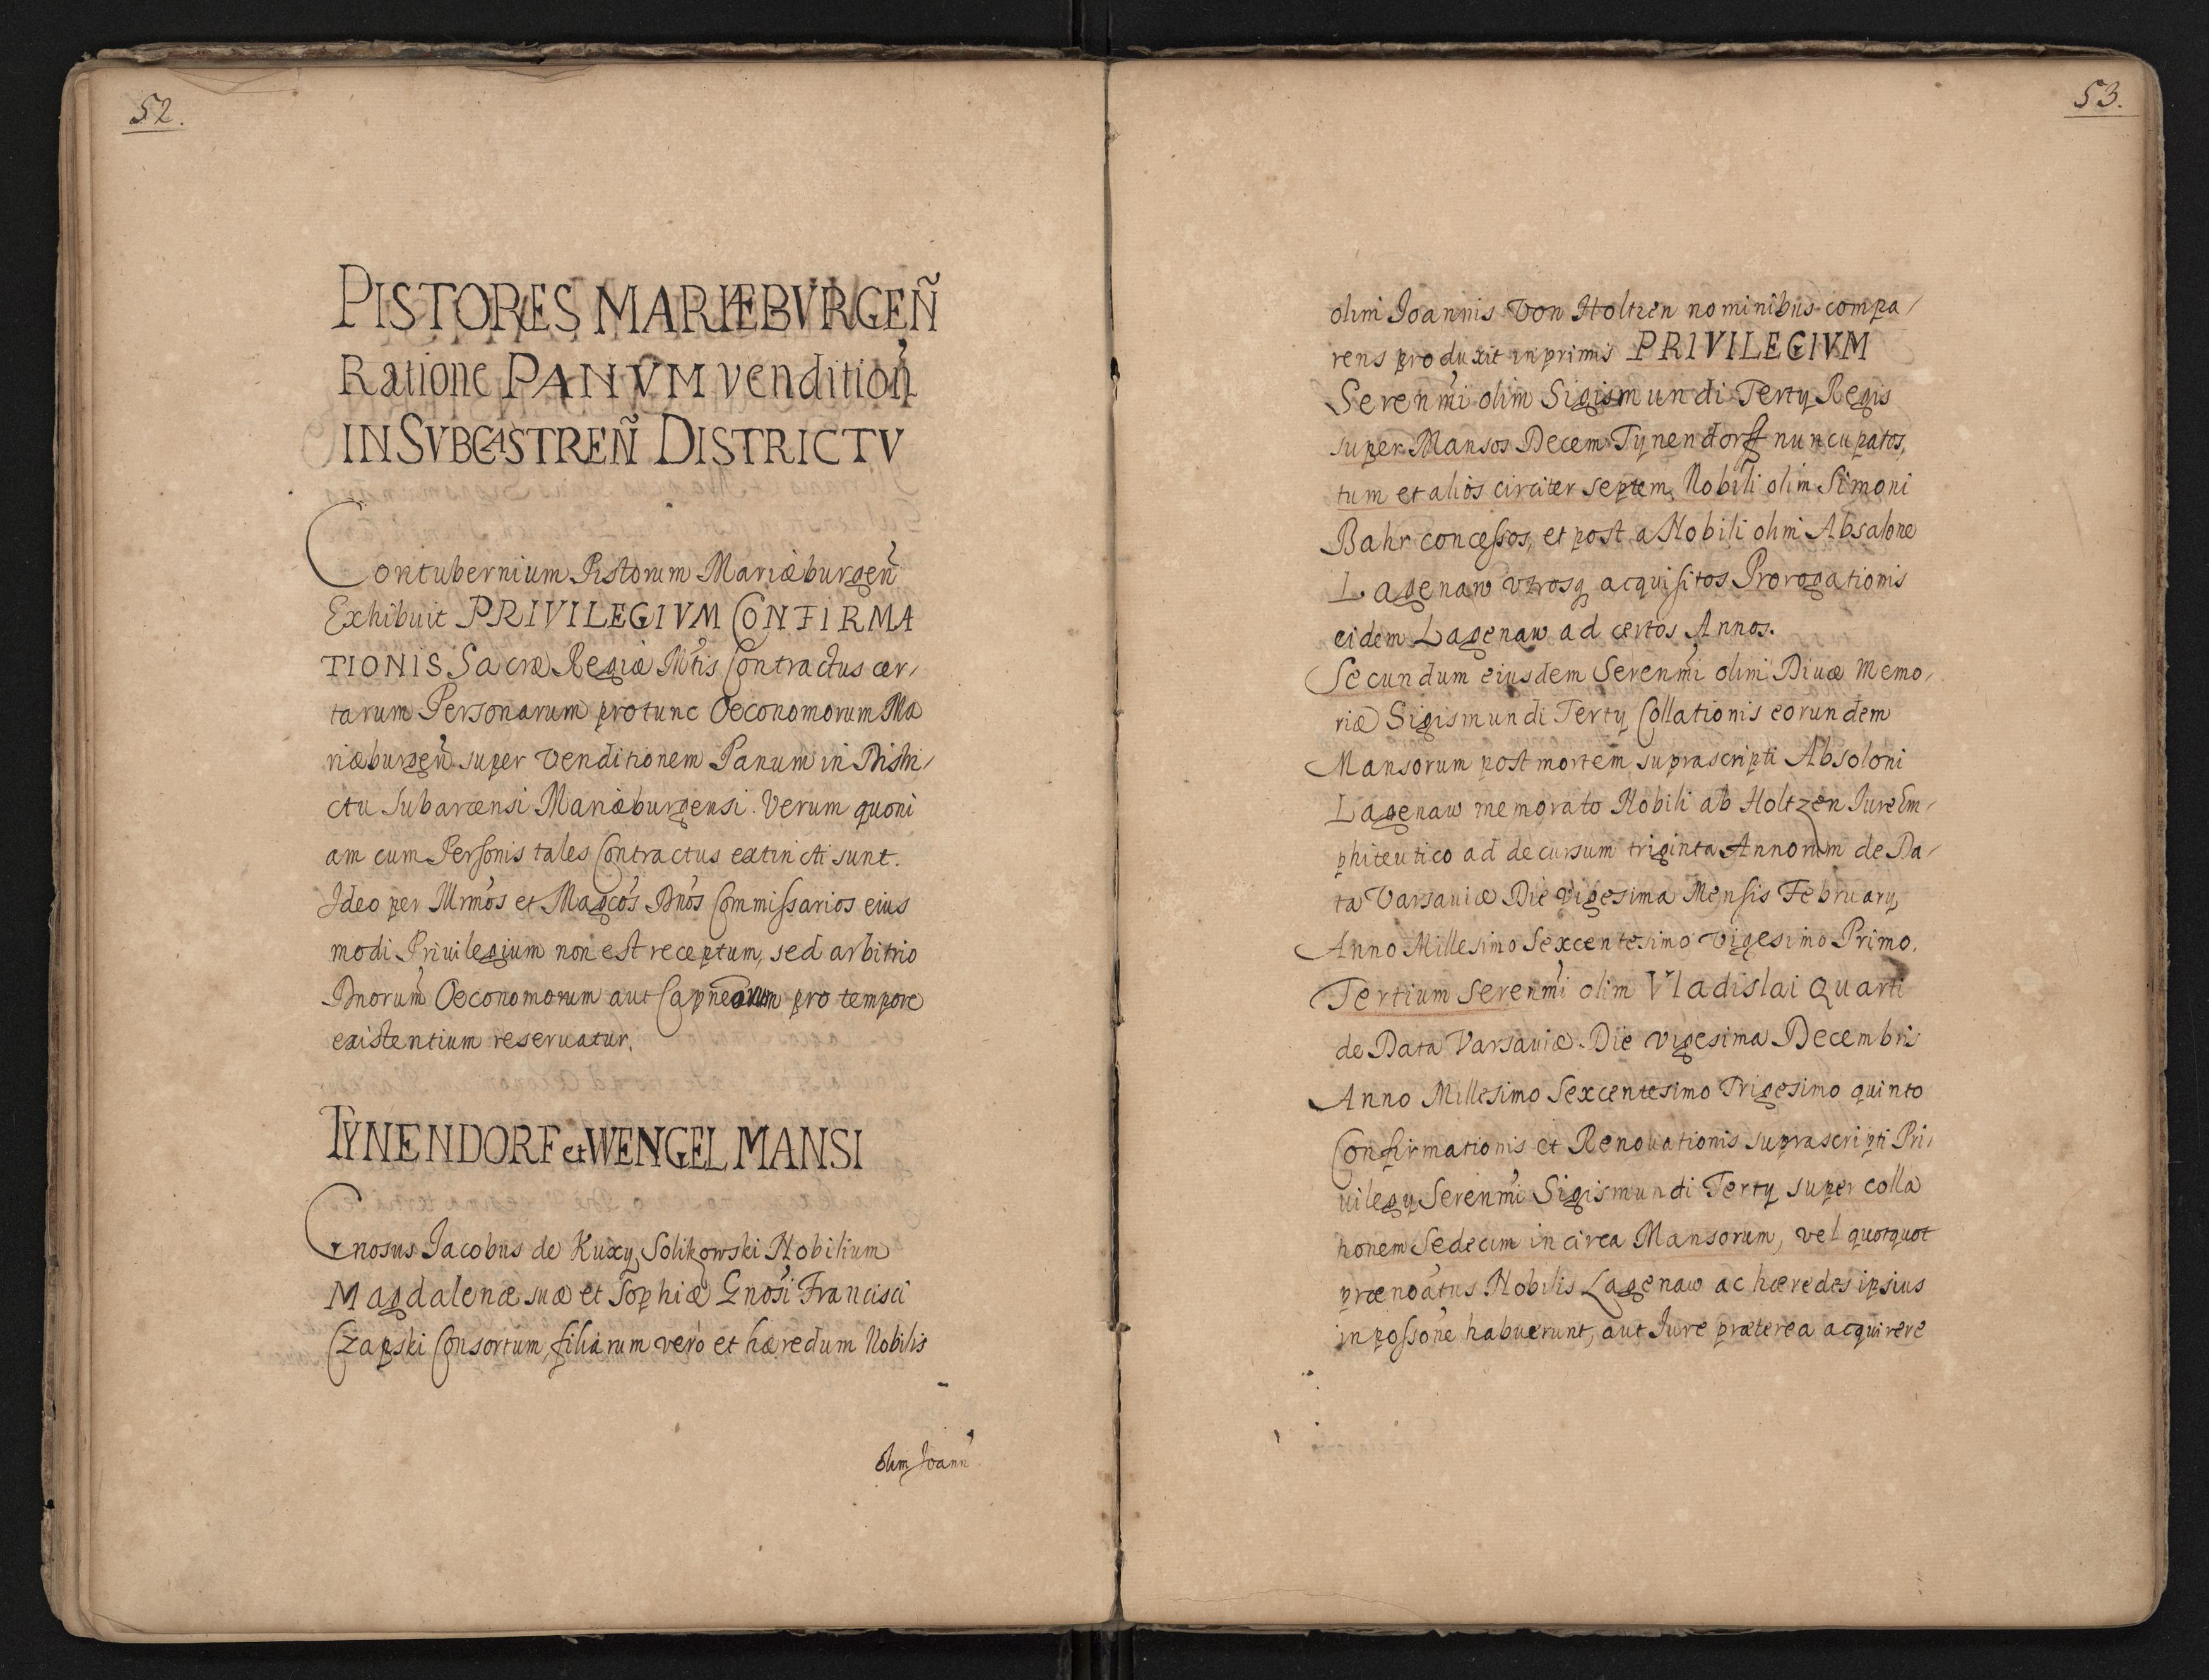 52.
PISTORES MARIÆBVRGEÑ
Ratione PANVM venditioñ
IN SVBCASTREÑ DISTRICTV
Contubernium Pistorum Mariæburgeñ
Exhibuit PRIVILEGIVM CONFIRMA
TIONIS Sacræ Regiæ Mtis Contractus cer,
tarum Personarum protunc Oeconomorum Ma
riæburgeñ super venditionem Panum in Distri,
ctu Subarcensi Mariæburgensi. Verum quoni
am cum Personis tales Contractus extincti sunt.
Ideo per Illrmos et Magcos Dnos Commissarios eius
modi Priuilegium non est receptum, sed arbitrio
Dnorum Oeconomorum aut Capneorum pro tempore
existentium reseruatur.
TYNENDORF et WENGEL MANSI
Gnosus Jacobus de Kuxy Solikowski Nobilium
Magdalenæ suæ et Sophiæ Gnosi Francisci
Czapski Consortum, filiarum verò et hæredum Nobilis
olim Joann
53.
olim Joannis Von Holtzen nominibus compa,
rens produxit inprimis PRIVILEGIVM
Serenmi olim Sigismundi Tertÿ Regis
super Mansos Decem Tynendorff nuncupatos,
tum et alios circiter septem, Nobili olim Simoni
Bahr concessos, et post a Nobili olim Absalone
Lagenaw vtrosq acquisitos Prorogationis
eidem Lagenaw ad certos Annos.
Secundum eiusdem Serenmi olim Diuæ Memo,
riæ Sigismundi Tertÿ Collationis eorundem
Mansorum post mortem suprascripti Absoloni
Lagenaw memorato Nobili ab Holtzen Jure Em,
phiteutico ad decursum triginta Annorum de Da,
ta Varsauiæ Die Vigesima Mensis Februarÿ,
Anno Millesimo Sexcentesimo Vigesimo Primo.
Tertium Serenmi olim Vladislai Quarti
de Data Varsauiæ Die Vigesima Decembris
Anno Millesimo Sexcentesimo Trigesimo quinto
Confirmationis et Renouationis suprascripti Pri,
uilegÿ Serenmi Sigismundi Tertÿ super colla
tionem Sedecim in circa Mansorum, vel quotquot
prænoatus Nobilis Lagenaw ac hæredes ipsius
in possone habuerunt, aut Jure præterea acquirere